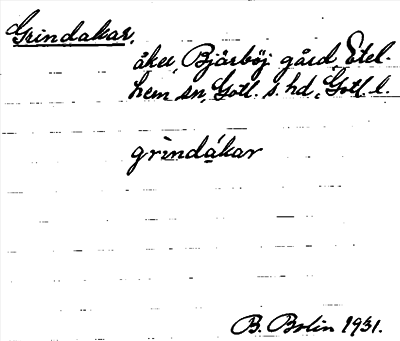 Grindakar,
åker, Bjärböj gård, Etel-
hem sn, Gotl. s. hd, Gotl. l.
grindákar
B. Bolin 1931.